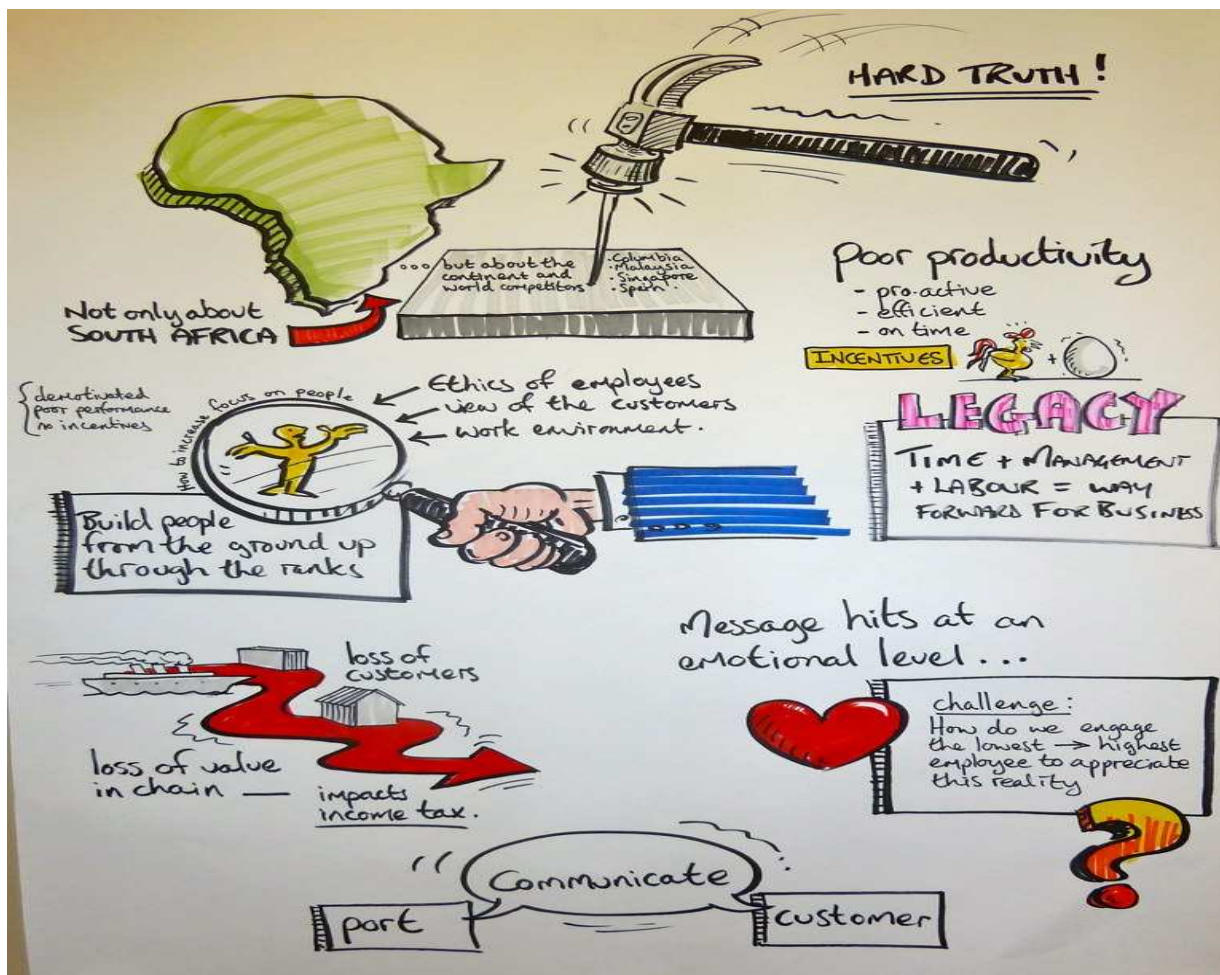 HARD TRUTH!
... but about the
continent and
world competitors
· Columbia
· Malaysia
· Singapore
· Spain
Not only about
SOUTH AFRICA
Poor productivity
- pro-active
- efficient
- on time
INCENTIVES
+
demotivated
poor performance
no incentives
How to increase focus on people
Ethics of employees
view of the customers
work environment.
Build people
from the ground up
through the ranks
LEGACY
TIME + MANAGEMENT
+ LABOUR = WAY
FORWARD FOR BUSINESS
loss of
customers
loss of value
in chain —
impacts
income tax.
Message hits at an
emotional level ...
challenge:
How do we engage
the lowest → highest
employee to appreciate
this reality
?
Communicate
port
customer